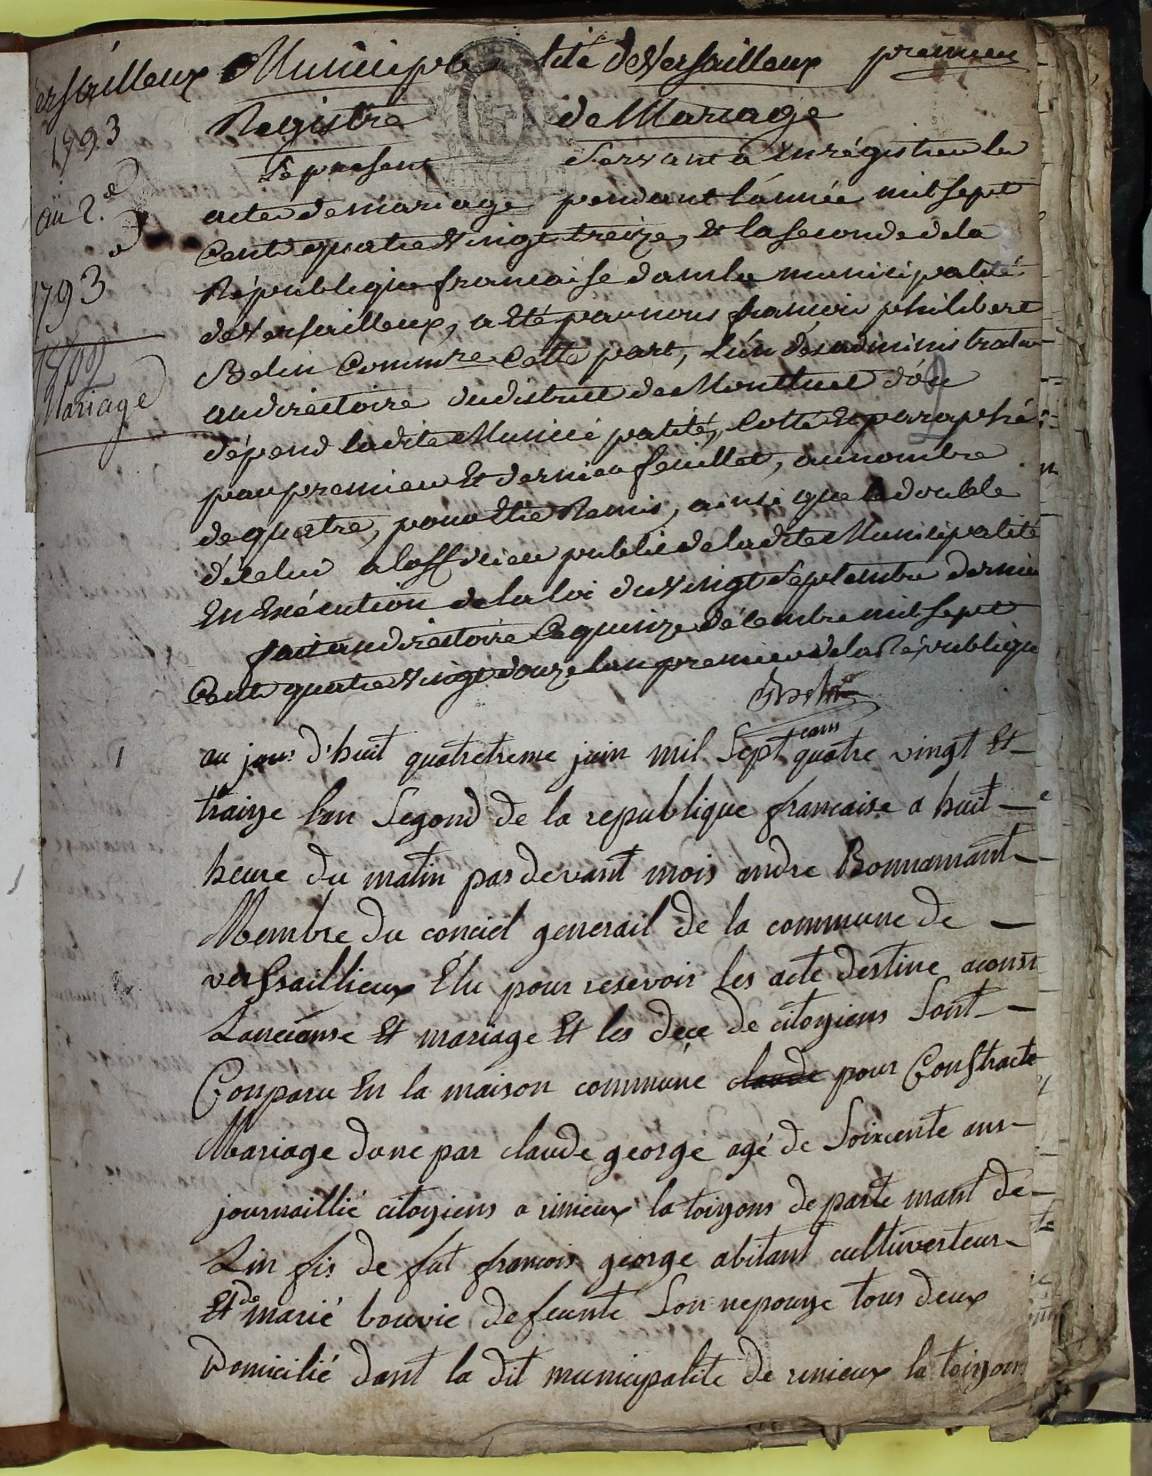 ersailleux
1793
an 2.e
1793
Mariage
Municipalité de Versailleux premier
Registre de Mariage
Le present Servant a Enrégistrer les
actes de mariage pendant l'année mil sept
Cent quatre Vingt treize, Et la seconde de la
République francaise dans la municipalité
de Versailleux, a Eté par nous francois philibert
Belin Commre Cette part, l'un des administrateurs
au directoire du district de Montluel d'ou
dépend ladite Municipalité, Cotté Et paraphé
par premier Et dernier feuillet, au nombre
de quatre, pour Etre Remis, ainsi que le double
d'icelui a lofficier public de ladite Municipalité
En Exécution de la loi du Vingt Septembre dernier
fait au directoire Ce quinze décembre mil sept
Cent quatre Vingt douze lan premier de la République
Belin
1
au jour d'huit quatretreme juin mil Sept cans quatre vingt Et
traize l'an Segond de la republique francaise a huit
heure du matin par devant mois andre Bonnamant
Membre du conciel generail de la commune de
verssaillieux Elu pour resevoir les acte destine aconst
Lanceanse Et mariage Et les dece de citoyiens Sont
Conparu En la maison commune claude pour Constracte
Mariage donc par claude george agé de Soixcente ans
journaillié citoyiens a rinieux la toizons departe mant de
Lin fis de fut francois george abitant cultuverteur
Et de marié bouvie defeunte Son nepouze tous deux
Domicilié dant la dit municipalite de rinieux la toizons